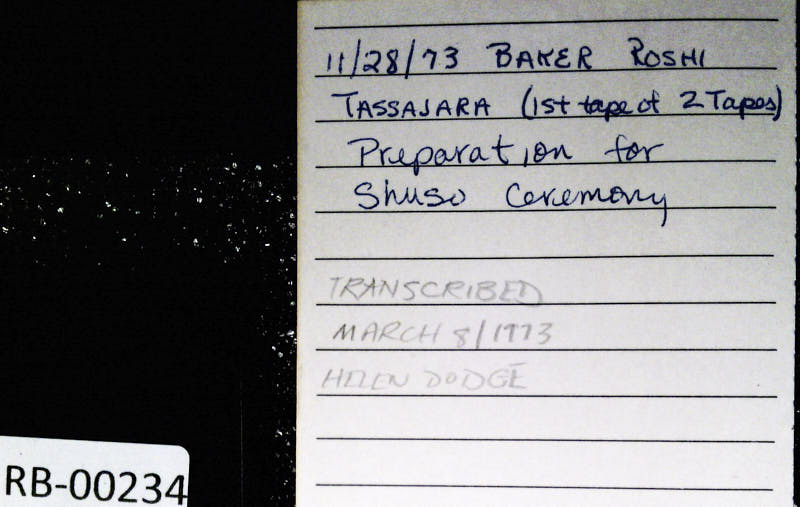 11/28/73 BAKER ROSHI
TASSAJARA (1st tape of 2 Tapes)
Preparation for
Shuso Ceremony
TRANSCRIBED
MARCH 8/1973
HELEN DODGE
RB-00234